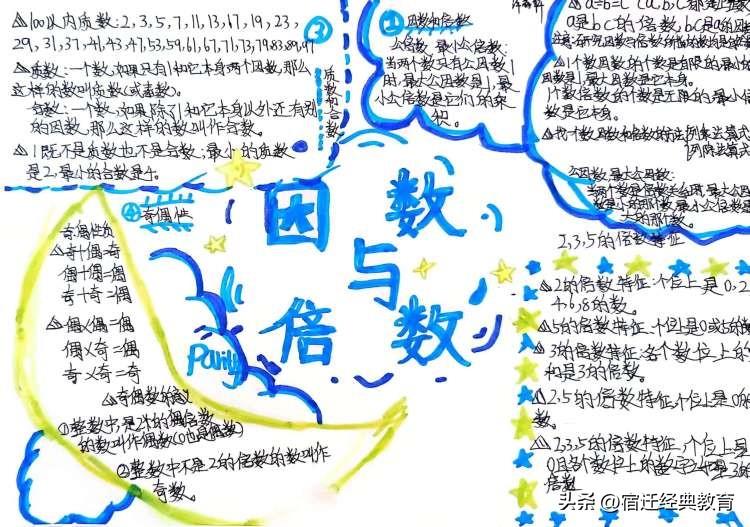 △100以内质数:2,3,5,7,11,13,17,19,23,
29,31,37,41,43,47,53,59,61,67,71,73,79,83,89,97
△质数:一个数,如果只有1和它本身两个因数,那么
这样的数叫质数(或素数)。
合数:一个数,如果除了1和它本身以外还有别
的因数,那么这样的数叫作合数。
△1既不是质数也不是合数;最小的质数
是2,最小的合数是4。
③
质数和合数
因数和倍数
公倍数 最小公倍数:
当两个数只有公因数1
时,最大公因数是1,最
小公倍数是它们的乘
积。
△a=b=c
a是bc的倍数,bc是a的因数
△1个数因数的个数是有限的,最小
因数是1,最大因数是它本身。
1个数倍数的个数是无限的,最小
数是它本身。
△找1个数因数和倍数的方法:列乘法算式
列除法算式
公因数,最大公因数:
大的那个数。
2,3,5的倍数特征
△2的倍数特征:个位上是0.2
4.6.8的数。
△5的倍数特征:个位上是0或5的
3的倍数特征:各个数位上的
和是3的倍数。
△2.5的倍数特征,个位上是0的
数。
△2,3,5的倍数特征,个位上是
0且各个数位上的数字之和是3的
倍数
④奇偶性
奇偶性质
△奇+偶=奇
偶+偶=偶
奇+奇=偶
△偶×偶=偶
偶×奇=偶
奇×奇=奇
△奇偶数的意义
①整数中,是2的倍数
的数叫作偶数(0也是偶数)
②整数中不是2的倍数的数叫作
奇数。
Parity
因数
与
倍数
头条 @宿迁经典教育